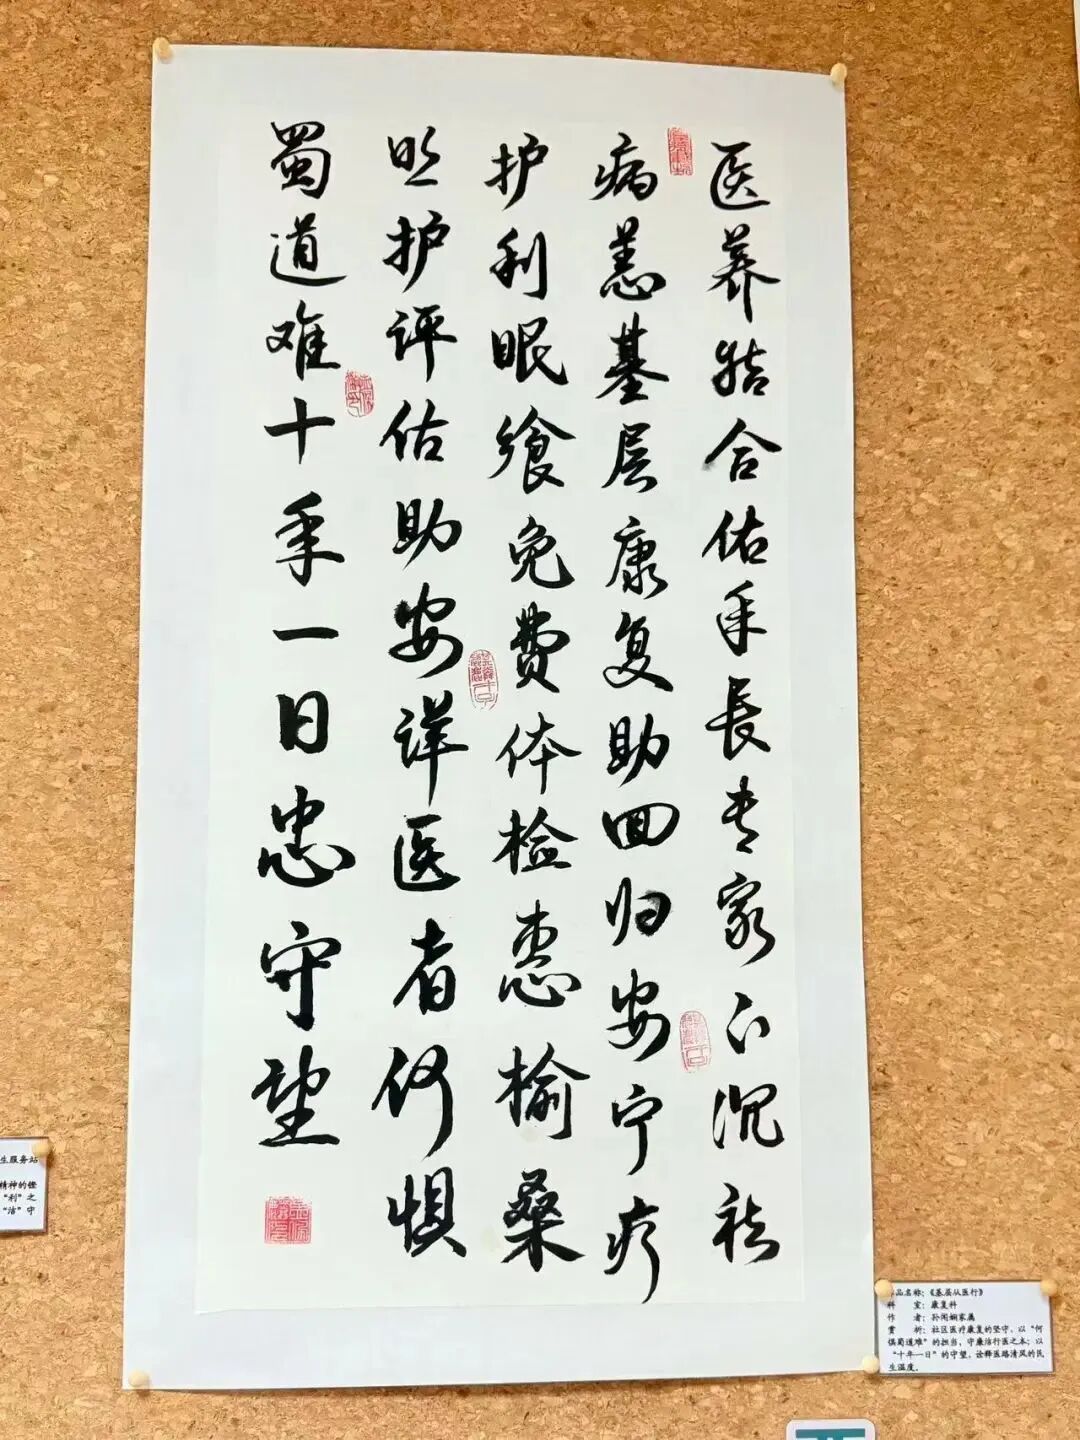 医养结合佑年长专家下沉祛
病恙基层康复助回归安宁疗
护利眠飨免费体检惠榆桑
照护评估助安详医者何惧
蜀道难十年一日忠守望
生服务站
精神的铿
“利”之
守
品名称：《基层从医行》
科 室：康复科
作 者：孙娴家属
赏 析：社区医疗康复的坚守，以“何
惧蜀道难”的担当，守廉洁行医之本；以
“十年一日”的守望，诠释医路清风的民
生温度。